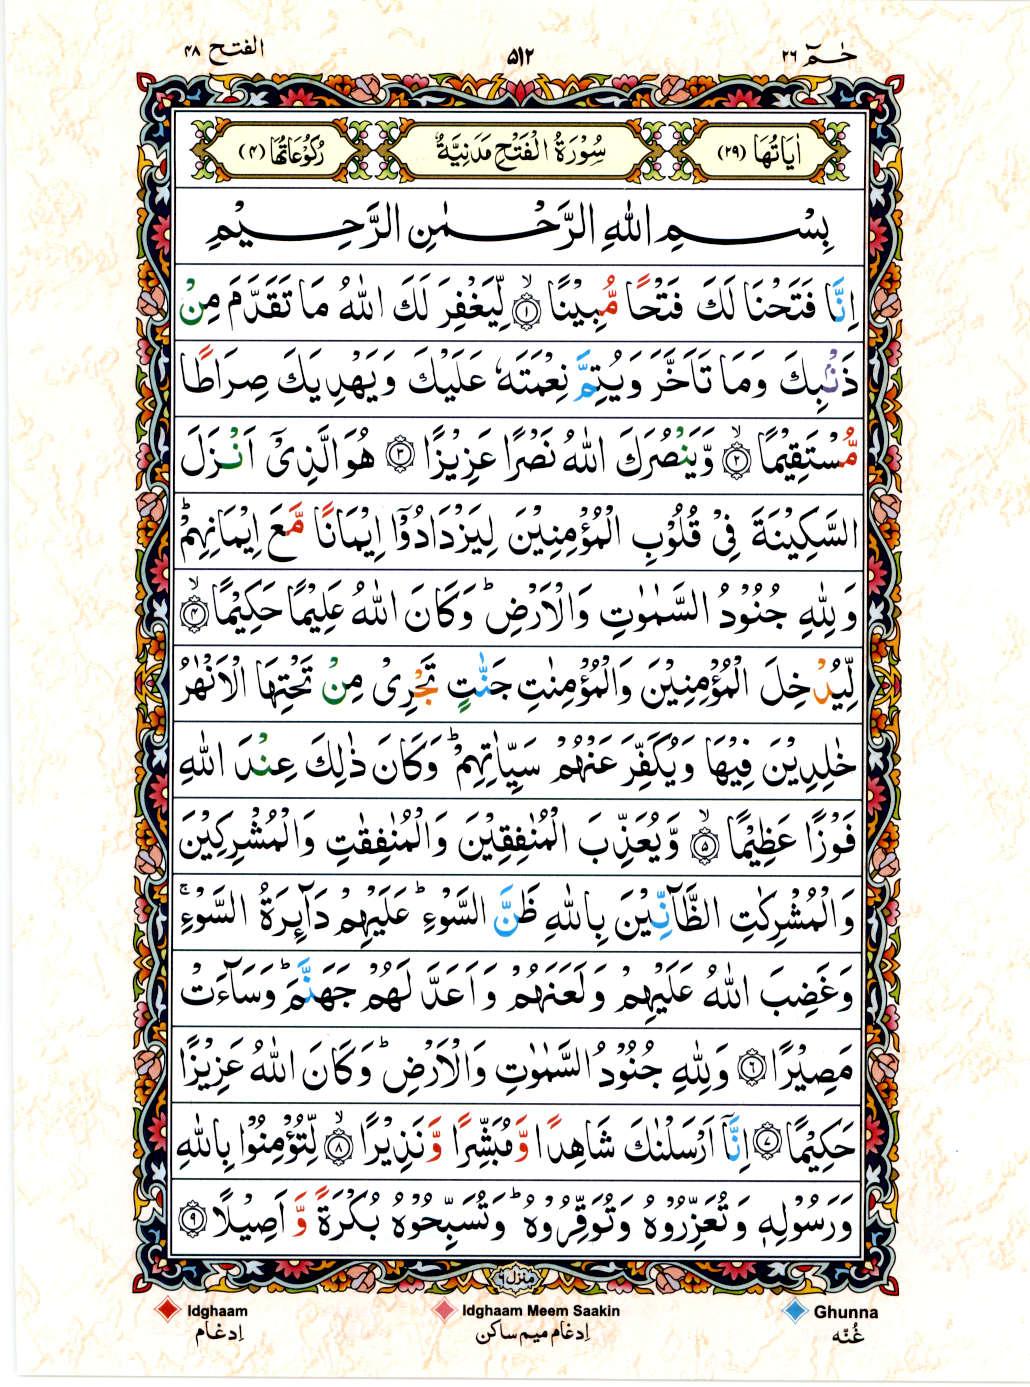 الفتح ۴۸
۵۱۲
حٰـمٓ ۲۶
اٰیَاتُهَا (۲۹)
سُوْرَةُ الْفَتْحِ مَدَنِیَّةٌ
رُكُوْعَاتُهَا (۴)
بِسْـــمِ اللهِ الرَّحْـــمٰنِ الرَّحِـــیْمِ
اِنَّا فَتَحْنَا لَكَ فَتْحًا مُّبِیْنًا ۙ﴿۱﴾ لِّیَغْفِرَ لَكَ اللهُ مَا تَقَدَّمَ مِنْ
ذَنْۢبِكَ وَمَا تَاَخَّرَ وَیُتِمَّ نِعْمَتَهٗ عَلَیْكَ وَیَهْدِیَكَ صِرَاطًا
مُّسْتَقِیْمًا ۙ﴿۲﴾ وَّیَنْصُرَكَ اللهُ نَصْرًا عَزِیْزًا ﴿۳﴾ هُوَ الَّذِیْۤ اَنْزَلَ
السَّكِیْنَةَ فِیْ قُلُوْبِ الْمُؤْمِنِیْنَ لِیَزْدَادُوْۤا اِیْمَانًا مَّعَ اِیْمَانِهِمْ ؕ
وَلِلّٰهِ جُنُوْدُ السَّمٰوٰتِ وَالْاَرْضِ ؕ وَكَانَ اللهُ عَلِیْمًا حَكِیْمًا ۙ﴿۴﴾
لِّیُدْخِلَ الْمُؤْمِنِیْنَ وَالْمُؤْمِنٰتِ جَنّٰتٍ تَجْرِیْ مِنْ تَحْتِهَا الْاَنْهٰرُ
خٰلِدِیْنَ فِیْهَا وَیُكَفِّرَ عَنْهُمْ سَیِّاٰتِهِمْ ؕ وَكَانَ ذٰلِكَ عِنْدَ اللهِ
فَوْزًا عَظِیْمًا ۙ﴿۵﴾ وَّیُعَذِّبَ الْمُنٰفِقِیْنَ وَالْمُنٰفِقٰتِ وَالْمُشْرِكِیْنَ
وَالْمُشْرِكٰتِ الظَّآنِّیْنَ بِاللهِ ظَنَّ السَّوْءِ ؕ عَلَیْهِمْ دَآىِٕرَةُ السَّوْءِ ۚ
وَغَضِبَ اللهُ عَلَیْهِمْ وَلَعَنَهُمْ وَاَعَدَّ لَهُمْ جَهَنَّمَ ؕ وَسَآءَتْ
مَصِیْرًا ﴿۶﴾ وَلِلّٰهِ جُنُوْدُ السَّمٰوٰتِ وَالْاَرْضِ ؕ وَكَانَ اللهُ عَزِیْزًا
حَكِیْمًا ﴿۷﴾ اِنَّاۤ اَرْسَلْنٰكَ شَاهِدًا وَّمُبَشِّرًا وَّنَذِیْرًا ۙ﴿۸﴾ لِّتُؤْمِنُوْا بِاللهِ
وَرَسُوْلِهٖ وَتُعَزِّرُوْهُ وَتُوَقِّرُوْهُ ؕ وَتُسَبِّحُوْهُ بُكْرَةً وَّاَصِیْلًا ﴿۹﴾
منزل ۶
Ghunna
غُنّه
Idghaam Meem Saakin
اِدغام میم ساکن
Idghaam
اِدغام